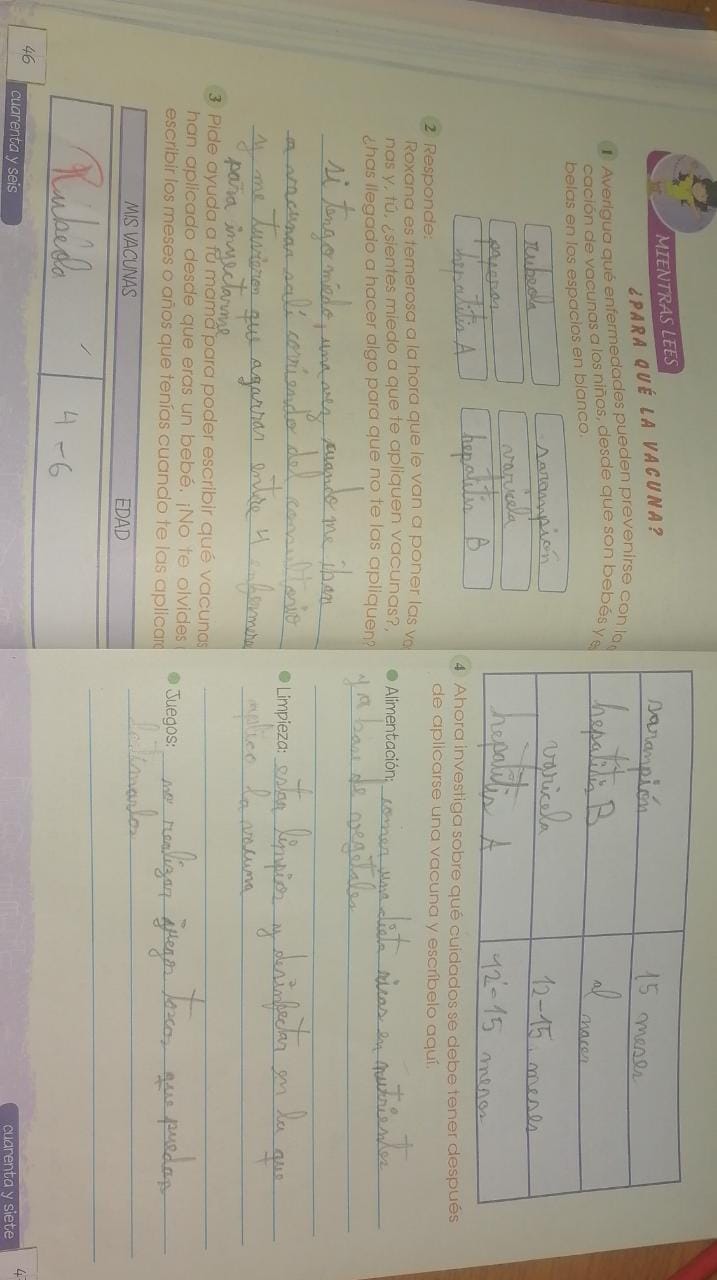 MIENTRAS LEES
¿PARA QUÉ LA VACUNA?
1 Averigua qué enfermedades pueden prevenirse con la
cación de vacunas a los niños, desde que son bebés y e
belas en los espacios en blanco.
rubeola
sarampión
paperas
varicela
hepatitis A
hepatitis B
2 Responde:
Roxana es temerosa a la hora que le van a poner las va
nas y, tú, ¿sientes miedo a que te apliquen vacunas?,
¿has llegado a hacer algo para que no te las apliquen?
si tengo miedo, una vez cuando me iban
a vacunar salí corriendo del consultorio
y me tuvieron que agarrar entre 4 enfermera
para inyectarme
3 Pide ayuda a tu mamá para poder escribir qué vacunas
han aplicado desde que eras un bebé. ¡No te olvides
escribir los meses o años que tenías cuando te las aplicar
MIS VACUNAS EDAD
Rubéola 4-6
46 cuarenta y seis
sarampión 15 meses
hepatitis B al nacer
varicela 12-15 meses
hepatitis A 12-15 meses
4 Ahora investiga sobre qué cuidados se debe tener después
de aplicarse una vacuna y escríbelo aquí.
Alimentación: comer una dieta ricas en nutrientes
y a base de vegetales
Limpieza: estar limpios y desinfectar en la que
aplico la vacuna
Juegos: no realizar juegos toscos que puedan
lastimarlos
cuarenta y siete 4